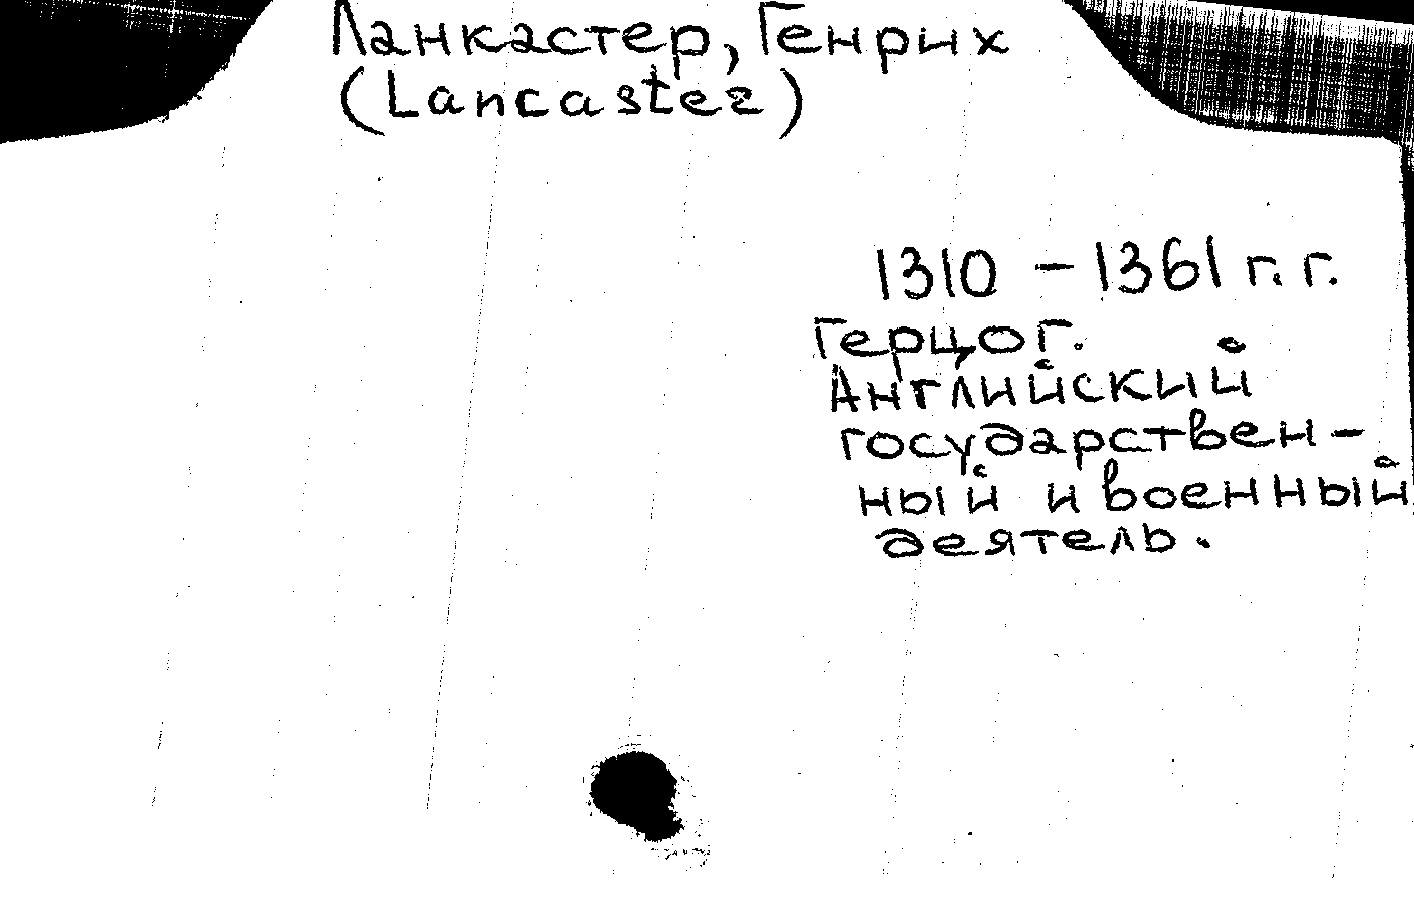 Ланкастер, Генрих
(Lancaster)
1310 – 1361 г. г.
Герцог.
Английский
государствен-
ный и военный
деятель.